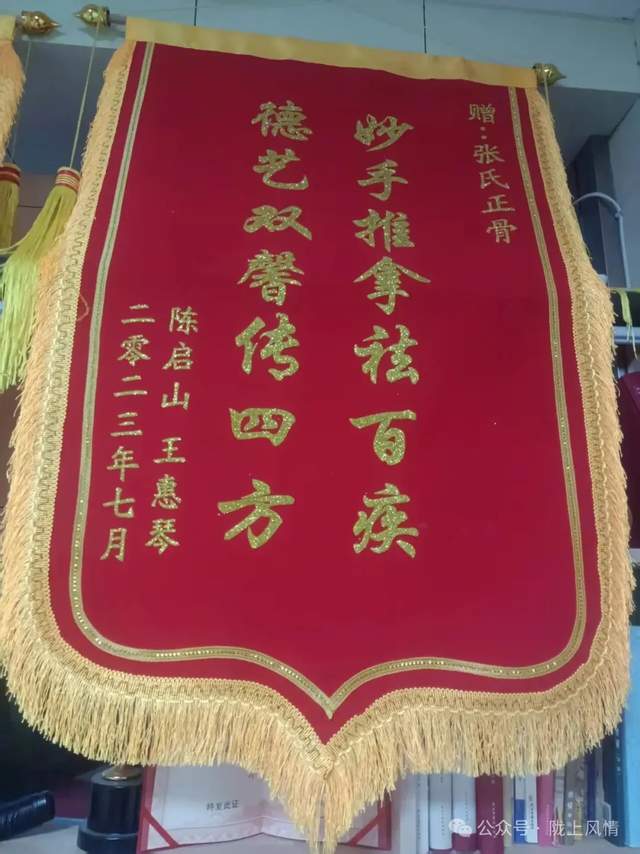 赠：张氏正骨
妙手推拿祛百疾
德艺双馨传四方
陈启山 王惠琴
二零二三年七月
特发此证
公众号·陇上风情